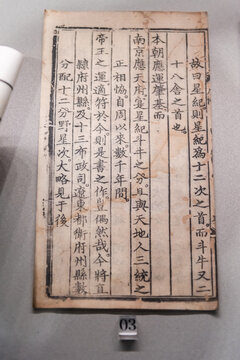 故曰星紀則星紀為十二次之首而斗牛又二
十八舍之首也
本朝應運肇基而
南京應天府寔星紀斗牛之分且與天地人三統之
正相恊自周以來數千年間
帝王之運適符於今則是書之作豈偶然哉今將直
隷府州縣及十三布政司遼東都衛府州縣數
分配十二分野星次大略見于後
03